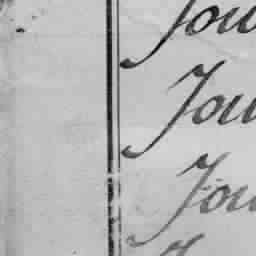 Jou
Jou
Jou